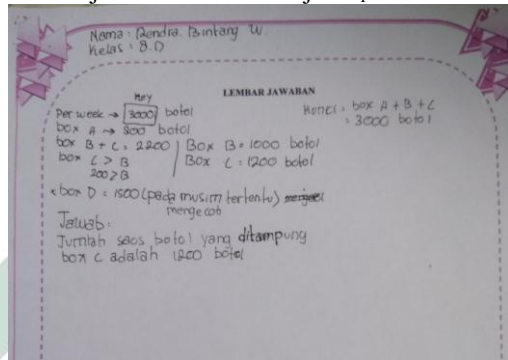 Nama : Rendra Bintang W.
Kelas : 8.D
LEMBAR JAWABAN
Per week → 3000 botol
box A → 800 botol
box B + C = 2200
box C > B
200 > B
Box B = 1000 botol
Box C = 1200 botol
box A + B + C
= 3000 botol
box D = 1500 (pada musim tertentu)
mengecoh
Jawab :
Jumlah saos botol yang ditampung
box C adalah 1200 botol